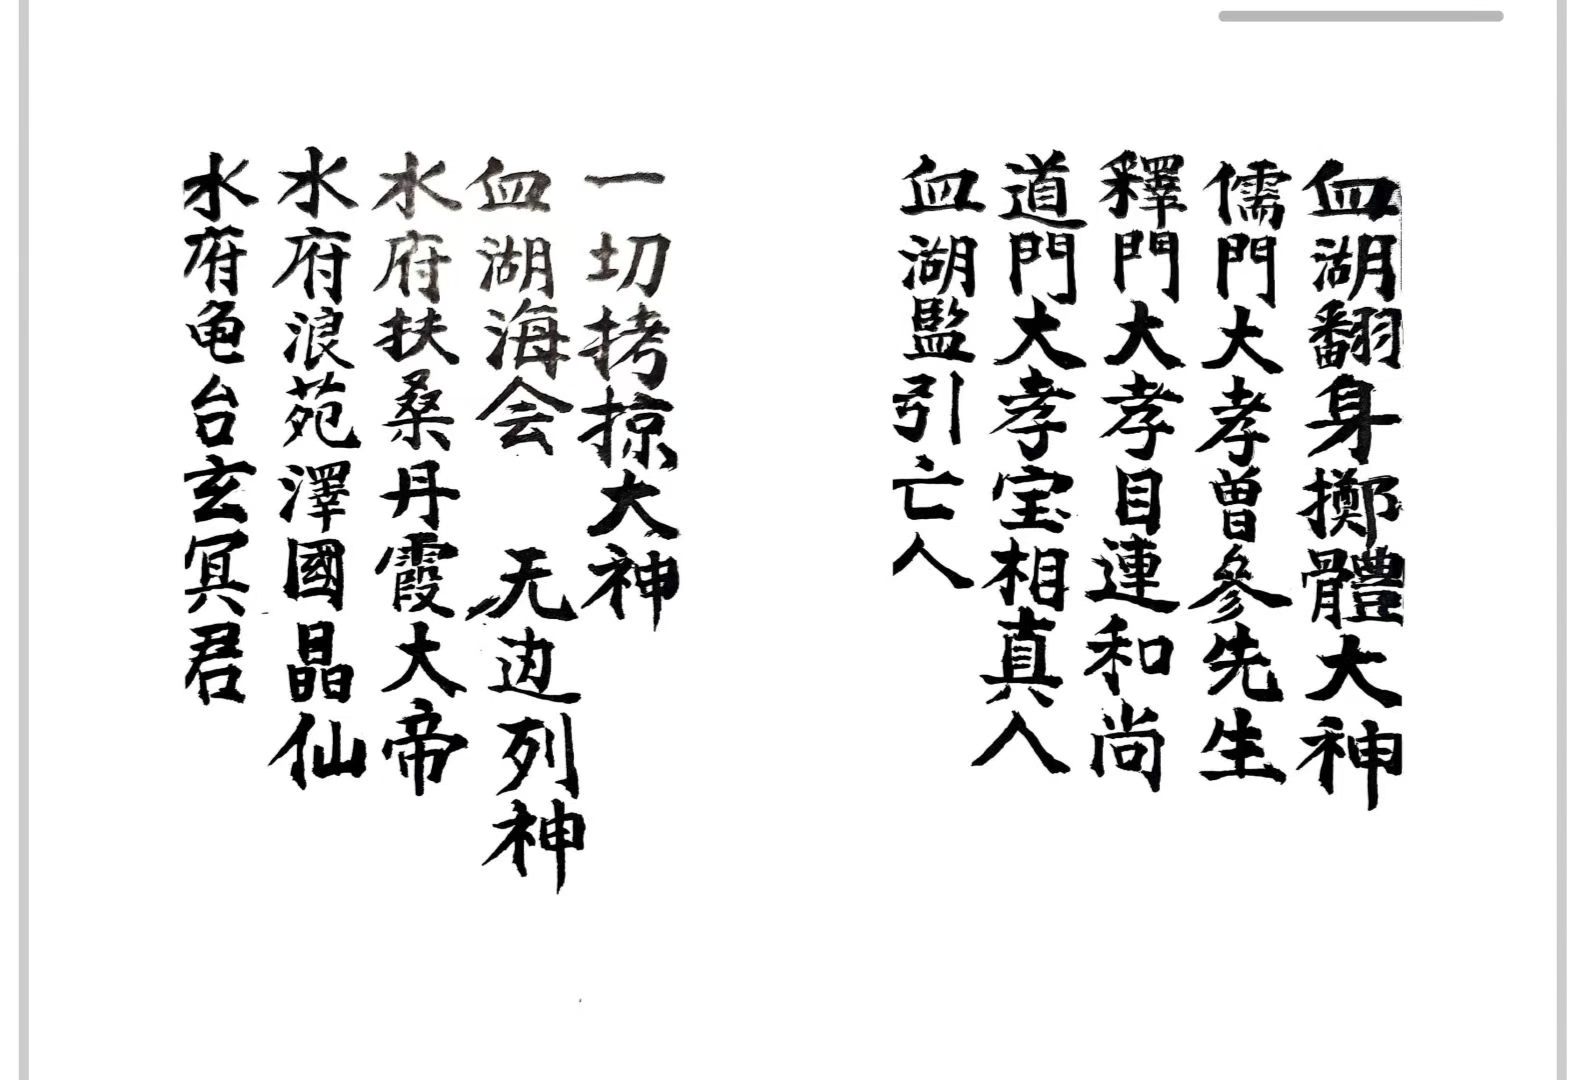 血湖翻身擲體大神
儒門大孝曽參先生
釋門大孝目連和尚
道門大孝宝相真人
血湖監引亡人
一切拷掠大神
血湖海会　无边列神
水府扶桑丹霞大帝
水府浪苑澤國晶仙
水府龟台玄冥君